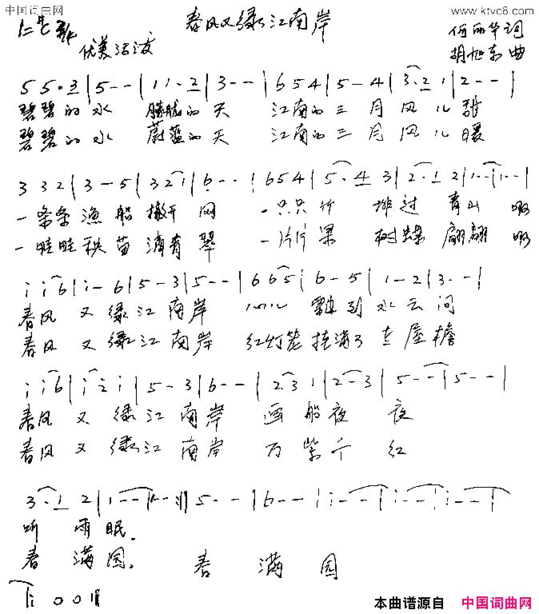 中国词曲网
www.ktvc8.com
春风又绿江南岸
优美 活泼
何丽华 词
胡旭东 曲
5 5·3 | 5 - - | 1 1·2 | 3 - - | 6 5 4 | 5 - 4 | 3·2 1 | 2 - - |
碧碧的水 朦胧的天 江南的三月风儿甜
碧碧的水 蔚蓝的天 江南的三月风儿暖
3 3 2 | 3 - 5 | 3 2 1 | 6 - - | 6 5 4 | 5·4 3 | 2·1 2 | 1 - - | 1 - - |
一条条渔船撒开网 一只只竹排过青山 啊
一畦畦秧苗滴青翠 一片片果树蝶翩翩 啊
i i 6 | i - 6 | 5 - 3 | 5 - - | 6 6 5 | 6 - 5 | 1 - 2 | 3 - - |
春风又绿江南岸 飘到水云间
春风又绿江南岸 红灯笼挂满了 屋檐
i i 6 | i 2 i | 5 - 3 | 6 - - | 2 3 1 | 2 - 3 | 5 - - | 5 - - |
春风又绿江南岸 画船夜夜
春风又绿江南岸 万紫千红
3·1 2 | 1 - - | 1 - - :|| 5 - - | 6 - - | i - - | i - - | i - - |
听雨眠。
春满园。 春满园
i 0 0 ||
本曲谱源自 中国词曲网